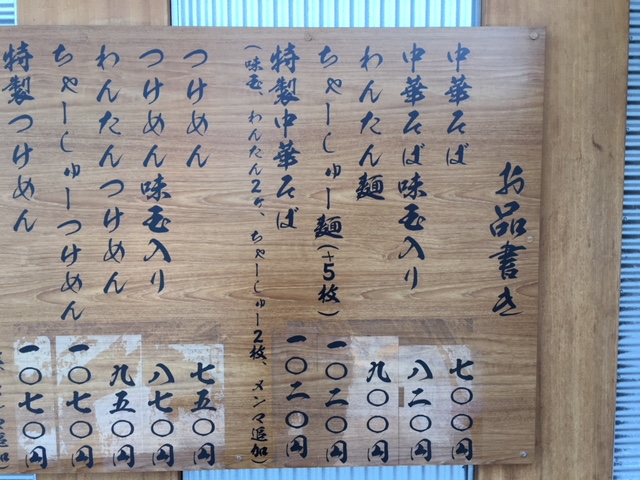 お品書き
中華そば 七〇〇円
中華そば味玉入り 八二〇円
わんたん麺 九〇〇円
ちゃーしゅー麺(+5枚) 一〇二〇円
特製中華そば 一〇二〇円
(味玉、わんたん2ヶ、ちゃーしゅー2枚、メンマ追加)
つけめん 七五〇円
つけめん味玉入り 八七〇円
わんたんつけめん 九五〇円
ちゃーしゅーつけめん 一〇七〇円
特製つけめん 一〇七〇円
メンマ追加)